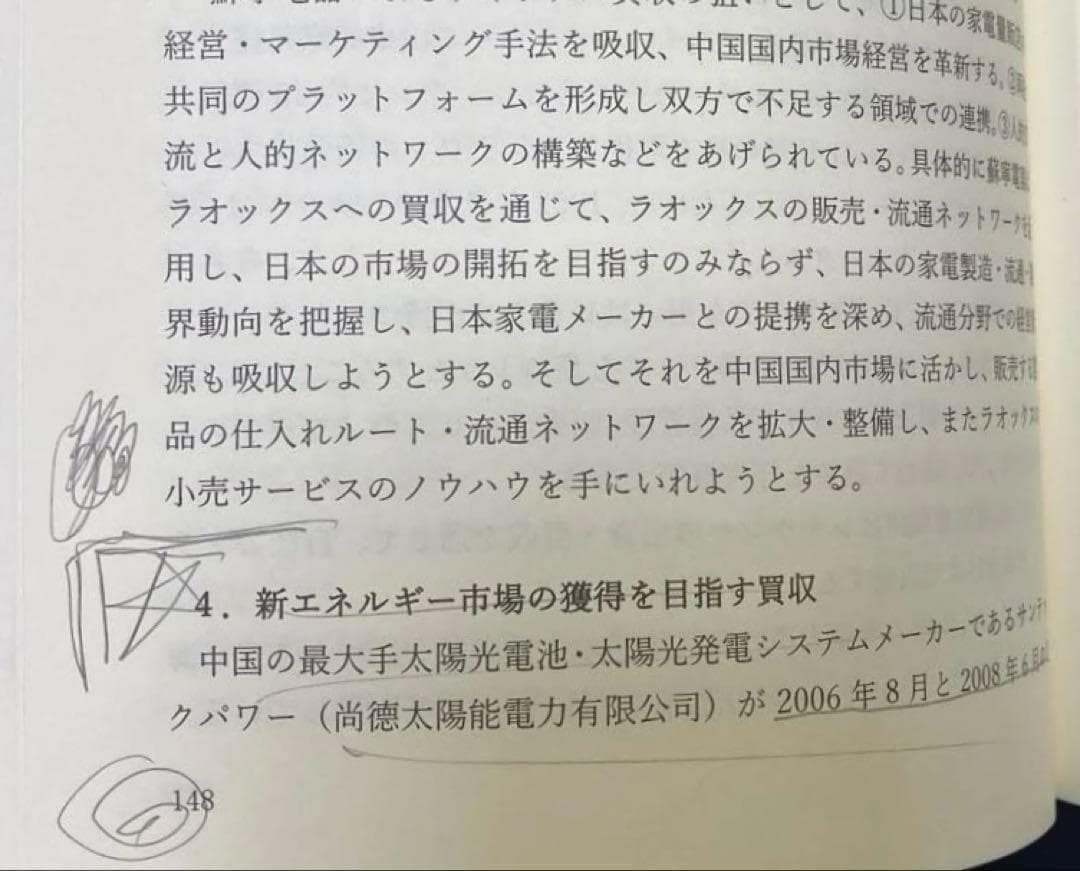 として、①日本の家電量販店
経営・マーケティング手法を吸収、中国国内市場経営を革新する。②
共同のプラットフォームを形成し双方で不足する領域での連携。③人的
流と人的ネットワークの構築などをあげられている。具体的に蘇寧電器
ラオックスへの買収を通じて、ラオックスの販売・流通ネットワークを
用し、日本の市場の開拓を目指すのみならず、日本の家電製造・流通・
界動向を把握し、日本家電メーカーとの提携を深め、流通分野での経営
源も吸収しようとする。そしてそれを中国国内市場に活かし、販売する
品の仕入れルート・流通ネットワークを拡大・整備し、またラオックスの
小売サービスのノウハウを手にいれようとする。
4．新エネルギー市場の獲得を目指す買収
中国の最大手太陽光電池・太陽光発電システムメーカーであるサンテッ
クパワー（尚德太陽能電力有限公司）が 2006 年 8 月と 2008 年 6 月の
148